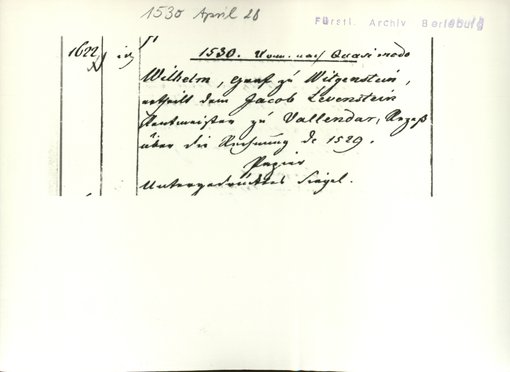 1530 April 28
Fürstl. Archiv Berleburg
1622
1530. Donn. nach Quasimodo
Wilhelm, Graf zu Witgenstein,
ertheilt dem Jacob Levenstein
Rentmeister zu Vallendar, Rezeß
über die Rechnung de 1529.
Papier
Untergedrücktes Siegel.